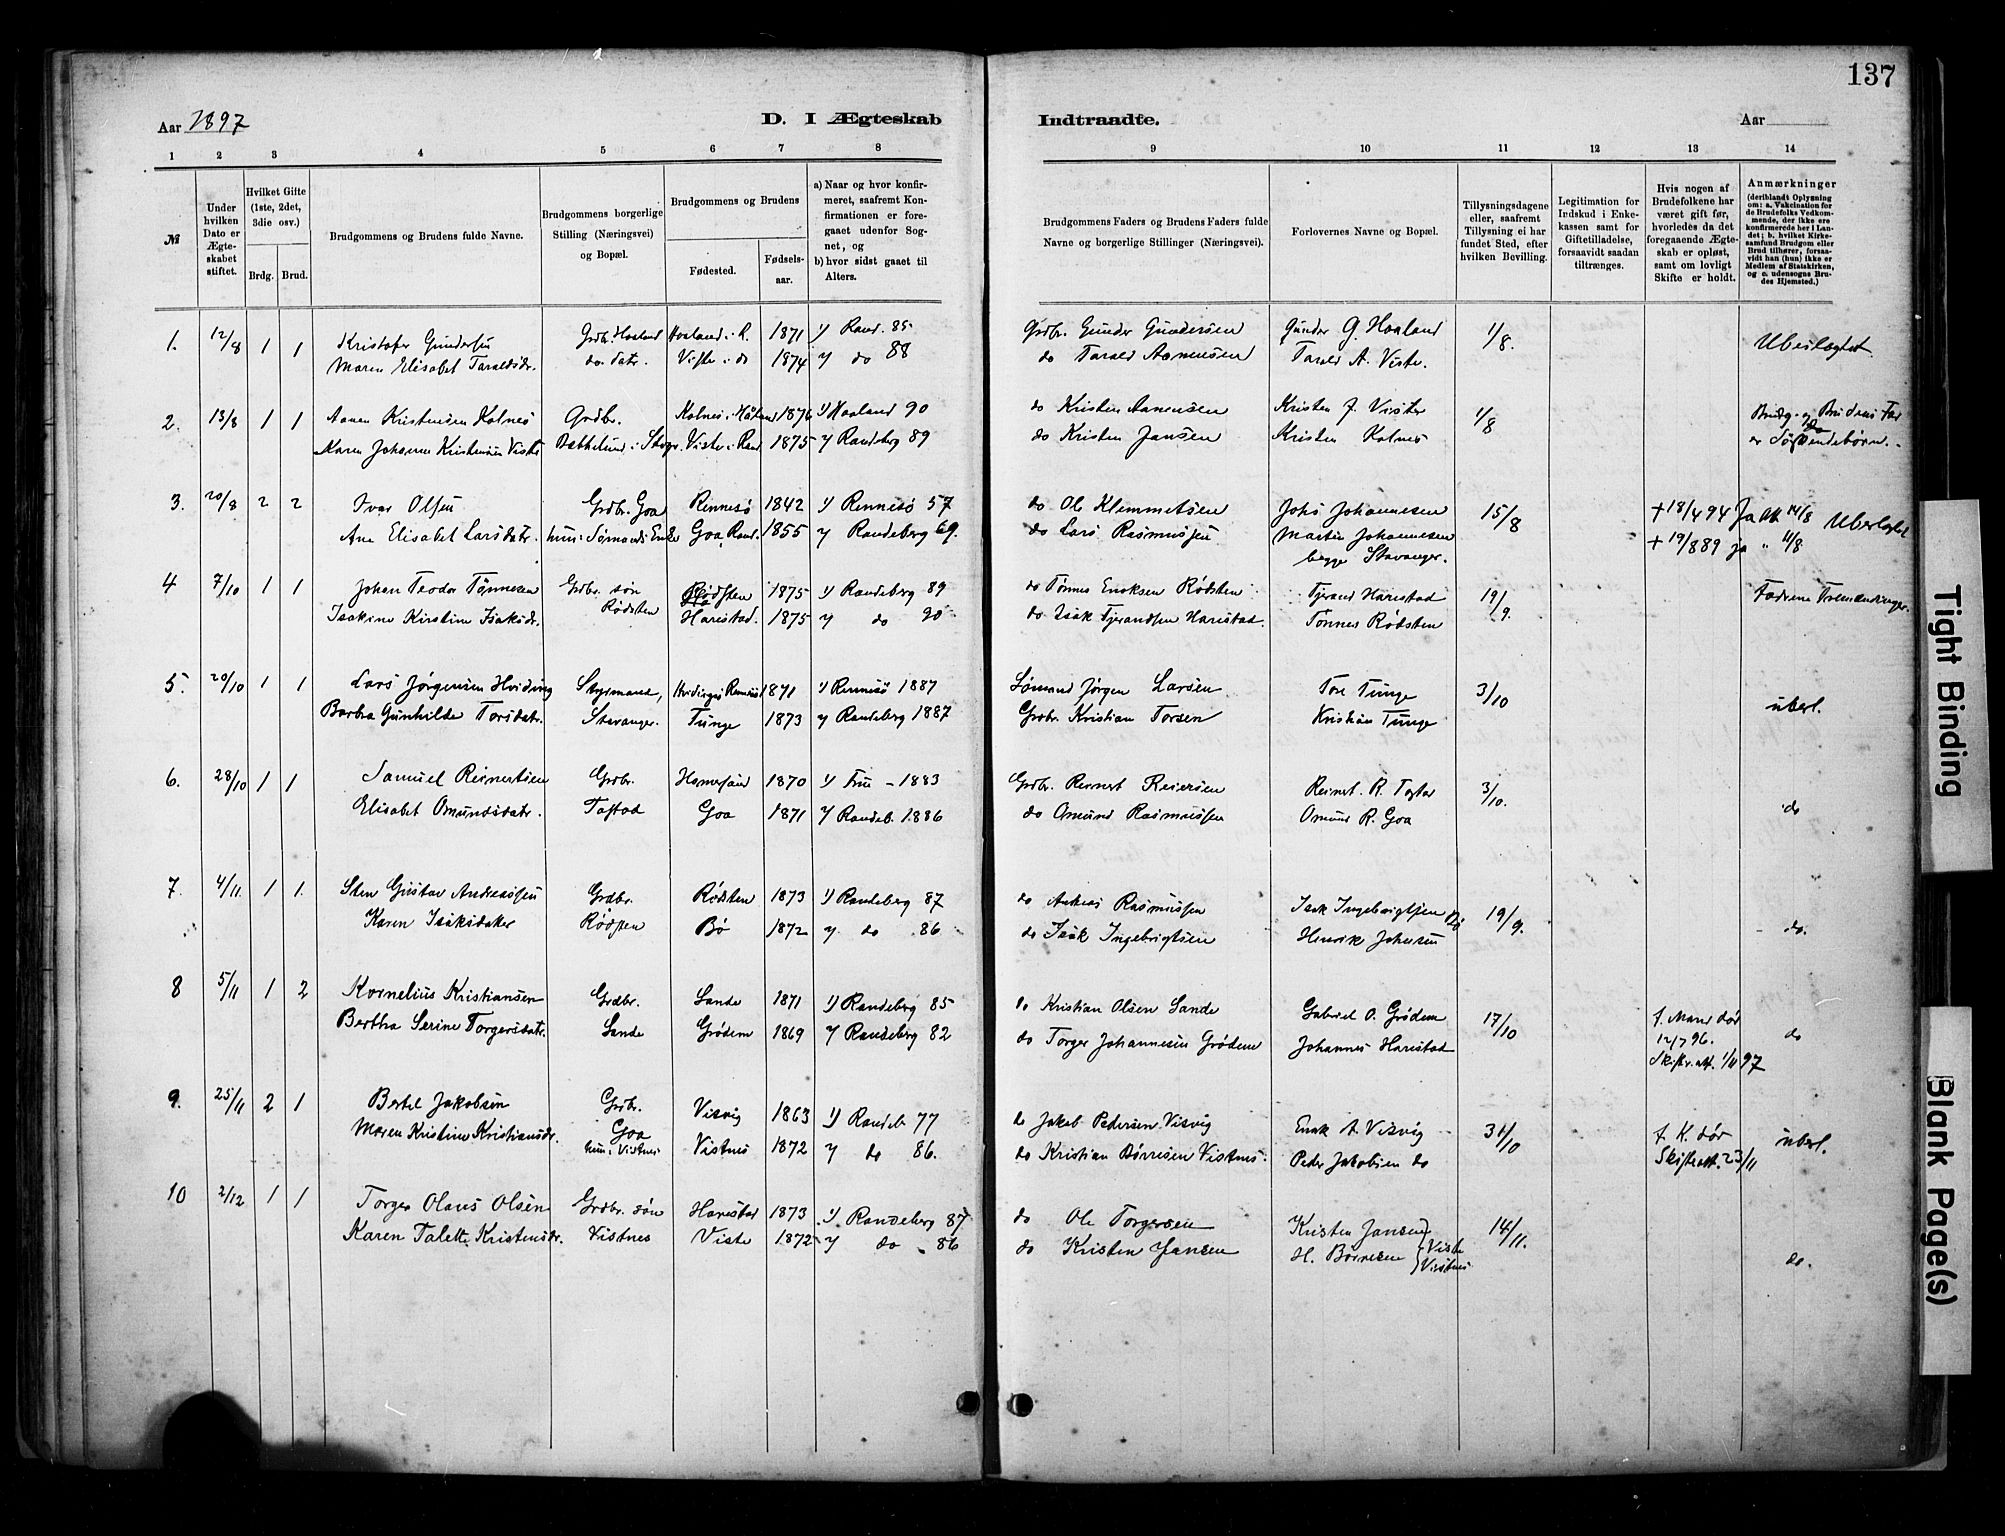 137
Aar 1897
D. I Ægteskab
Indtraadte.
Aar
1 2 3 4 5 6 7 8 9 10 11 12 13 14
№
Under hvilken Dato er Ægteskabet stiftet.
Hvilket Gifte (1ste, 2det, 3die osv.)
Brdg. Brud.
Brudgommens og Brudens fulde Navne.
Brudgommens borgerlige Stilling (Næringsvei) og Bopæl.
Brudgommens og Brudens
Fødested.
Fødselsaar.
a) Naar og hvor konfirmeret, saafremt Konfirmationen er foregaaet udenfor Sognet, og
b) hvor sidst gaaet til Alters.
Brudgommens Faders og Brudens Faders fulde Navne og borgerlige Stillinger (Næringsvei).
Forlovernes Navne og Bopæl.
Tillysningsdagene eller, saafremt Tillysning ei har fundet Sted, efter hvilken Bevilling.
Legitimation for Indskud i Enkekassen samt for Giftetilladelse, forsaavidt saadan tiltrænges.
Hvis nogen af Brudefolkene har været gift før, hvorledes da det foregaaende Ægteskab er opløst, samt om lovligt Skifte er holdt.
Anmærkninger (deriblandt Oplysning om: a. Vakcination for de Brudefolks Vedkommende, der ikke ere konfirmerede her i Landet; b. hvilket Kirkesamfund Brudgom eller Brud tilhører, forsaavidt han (hun) ikke er Medlem af Statskirken, og c. udensogns Brudes Hjemsted.)
1. 12/8 1 1 Kristofer Gundersen Grdb. Haaland Haaland i R. 1871 1) Rand. 85 Grdbr. Gunder Gundersen Gunder G. Haaland 1/8. Ubeslægtet
Maren Elisabet Taraldsdr. do. datr. Viste i do 1874 2) do 88 do Tarald Aamunsen Tarald A. Viste.
2. 13/8 1 1 Kristensen Kolnes Grdbr. Kolnes i Håland 1876 1) Haaland 90 do Kristen Kristen J. Viste 1/8 Brudg. og Brudens Far
Maren Johanne Kristensen Viste i Stvgr. Viste i Rand 1875 2) Randeberg 89 do Kristen Jansen Kristen Kolnes er Søskendebørn.
3. 20/8 2 2 Ivar Olsen Grdbr. Goa Rennesø 1842 1) Rennesø 57 do Ole Klemmetsen Johs Johannesen 15/8 + 18/4 94 Ja att 14/8 Ubeslegtet
Ane Elisabet Larsdatr. hun: Sømands Enke Goa, Rand. 1855 2) Randeberg 69. do Lars Rasmussen Martin Johannesen + 19/8 89 ja " 11/8
begge Stavanger.
4 7/10 1 1 Johan Teodor Tønnesen Grdbr. søn Rødsten 1875 1) Randeberg 89 do Tønnes Eriksen Rødsten Tjerand Harestad 19/9. Fædrene Tremændinger.
Isakine Kirstine Isaksdr. Rødsten Harestad. 1875 2) do 90 do Isak Tjerandsen Harestad. Tønnes Rødsten
5. 20/10 1 1 Lars Jørgensen Hviding Styrmand, Hvidingsø Rennesø 1871 1) Rennesø 1887 Sømand Jørgen Larsen Tore Tunge 3/10 ubesl.
Barbra Gunhilde Torsdatr. Stavanger. Tunge 1873 2) Randeberg 1887 Grdbr. Kristian Torsen Kristian Tunge
6. 28/10 1 1 Samuel Reinertsen Grdbr. 1870 1) Frue – 1883 Grdbr. Reinert Reiersen Reinert R. Tastad 3/10. do
Elisabet Omundsdatr. Tastad Goa 1871 2) Randeb. 1886 do Omund Rasmussen Omund R. Goa
7. 4/11. 1 1. Sten Gustav Andreassen Grdbr. Rødsten 1873 1) Randeberg 87 do Andreas Rasmussen Isak Ingebrigtsen Bø 19/9. do.
Karen Isaksdater Rødsten Bø 1872 2) do 86 do Isak Ingebrigtsen Henrik Johnsen
8 5/11 1 2 Kornelius Kristiansen Grdbr. Sande 1871 1) Randeberg 85 do Kristian Olsen Sande Gabriel O. Grødem 17/10 f. Mand dør do
Bertha Serine Torgersdatr. Sande Grødem 1869 2) Randeberg 82 do Torger Johannesen Grødem Johannes Harestad 12/7 96.
Skiftr. att. 1/11 97
9. 25/11 2 1 Bertel Jakobsen Grdbr. Visvig 1863 1) Randeb 77 do Jakob Pedersen Visvig Enok A Visvig 31/10 f. K. dør ubesl.
Maren Kristine Kristiansdr. Goa hun: Vistnes Vistnes 1872 2) do 86. do Kristian Børresen Vistnes. Peder Jakobsen do Skifteatt. 23/11
10 2/12 1 1 Torger Olaus Olsen Grdbr. søn Harestad 1873 1) Randeberg 87 do Ole Torgersen Kristen Jansen } Viste 14/11. do.
Karen Talette Kristensdr. Vistnes Viste 1872 2) do 86 do Kristen Jansen H. Børresen } Vistnes
Tight Binding
Blank Page(s)